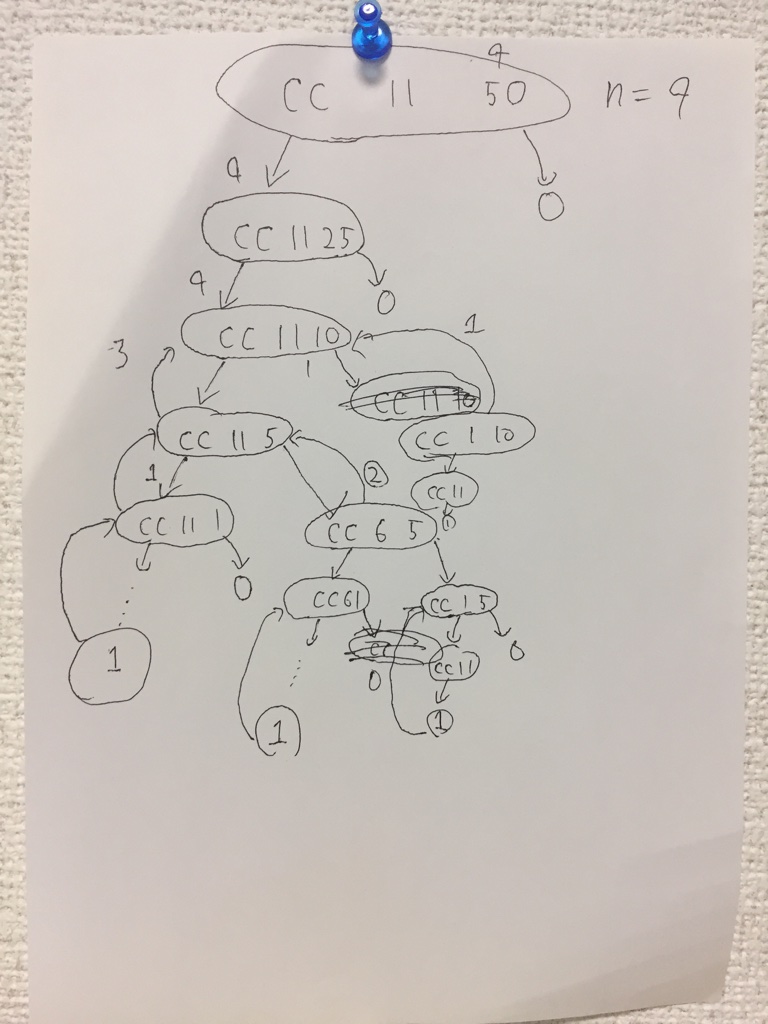 4
CC 11 50 n = 4
4
0
CC 11 25
4
0
CC 11 10
1
3
1
CC 11 10
CC 11 5
CC 1 10
1
2
CC 11
CC 11 1
CC 6 5
1
0
CC 6 1
CC 1 5
0
CC
CC 11
0
1
1
1